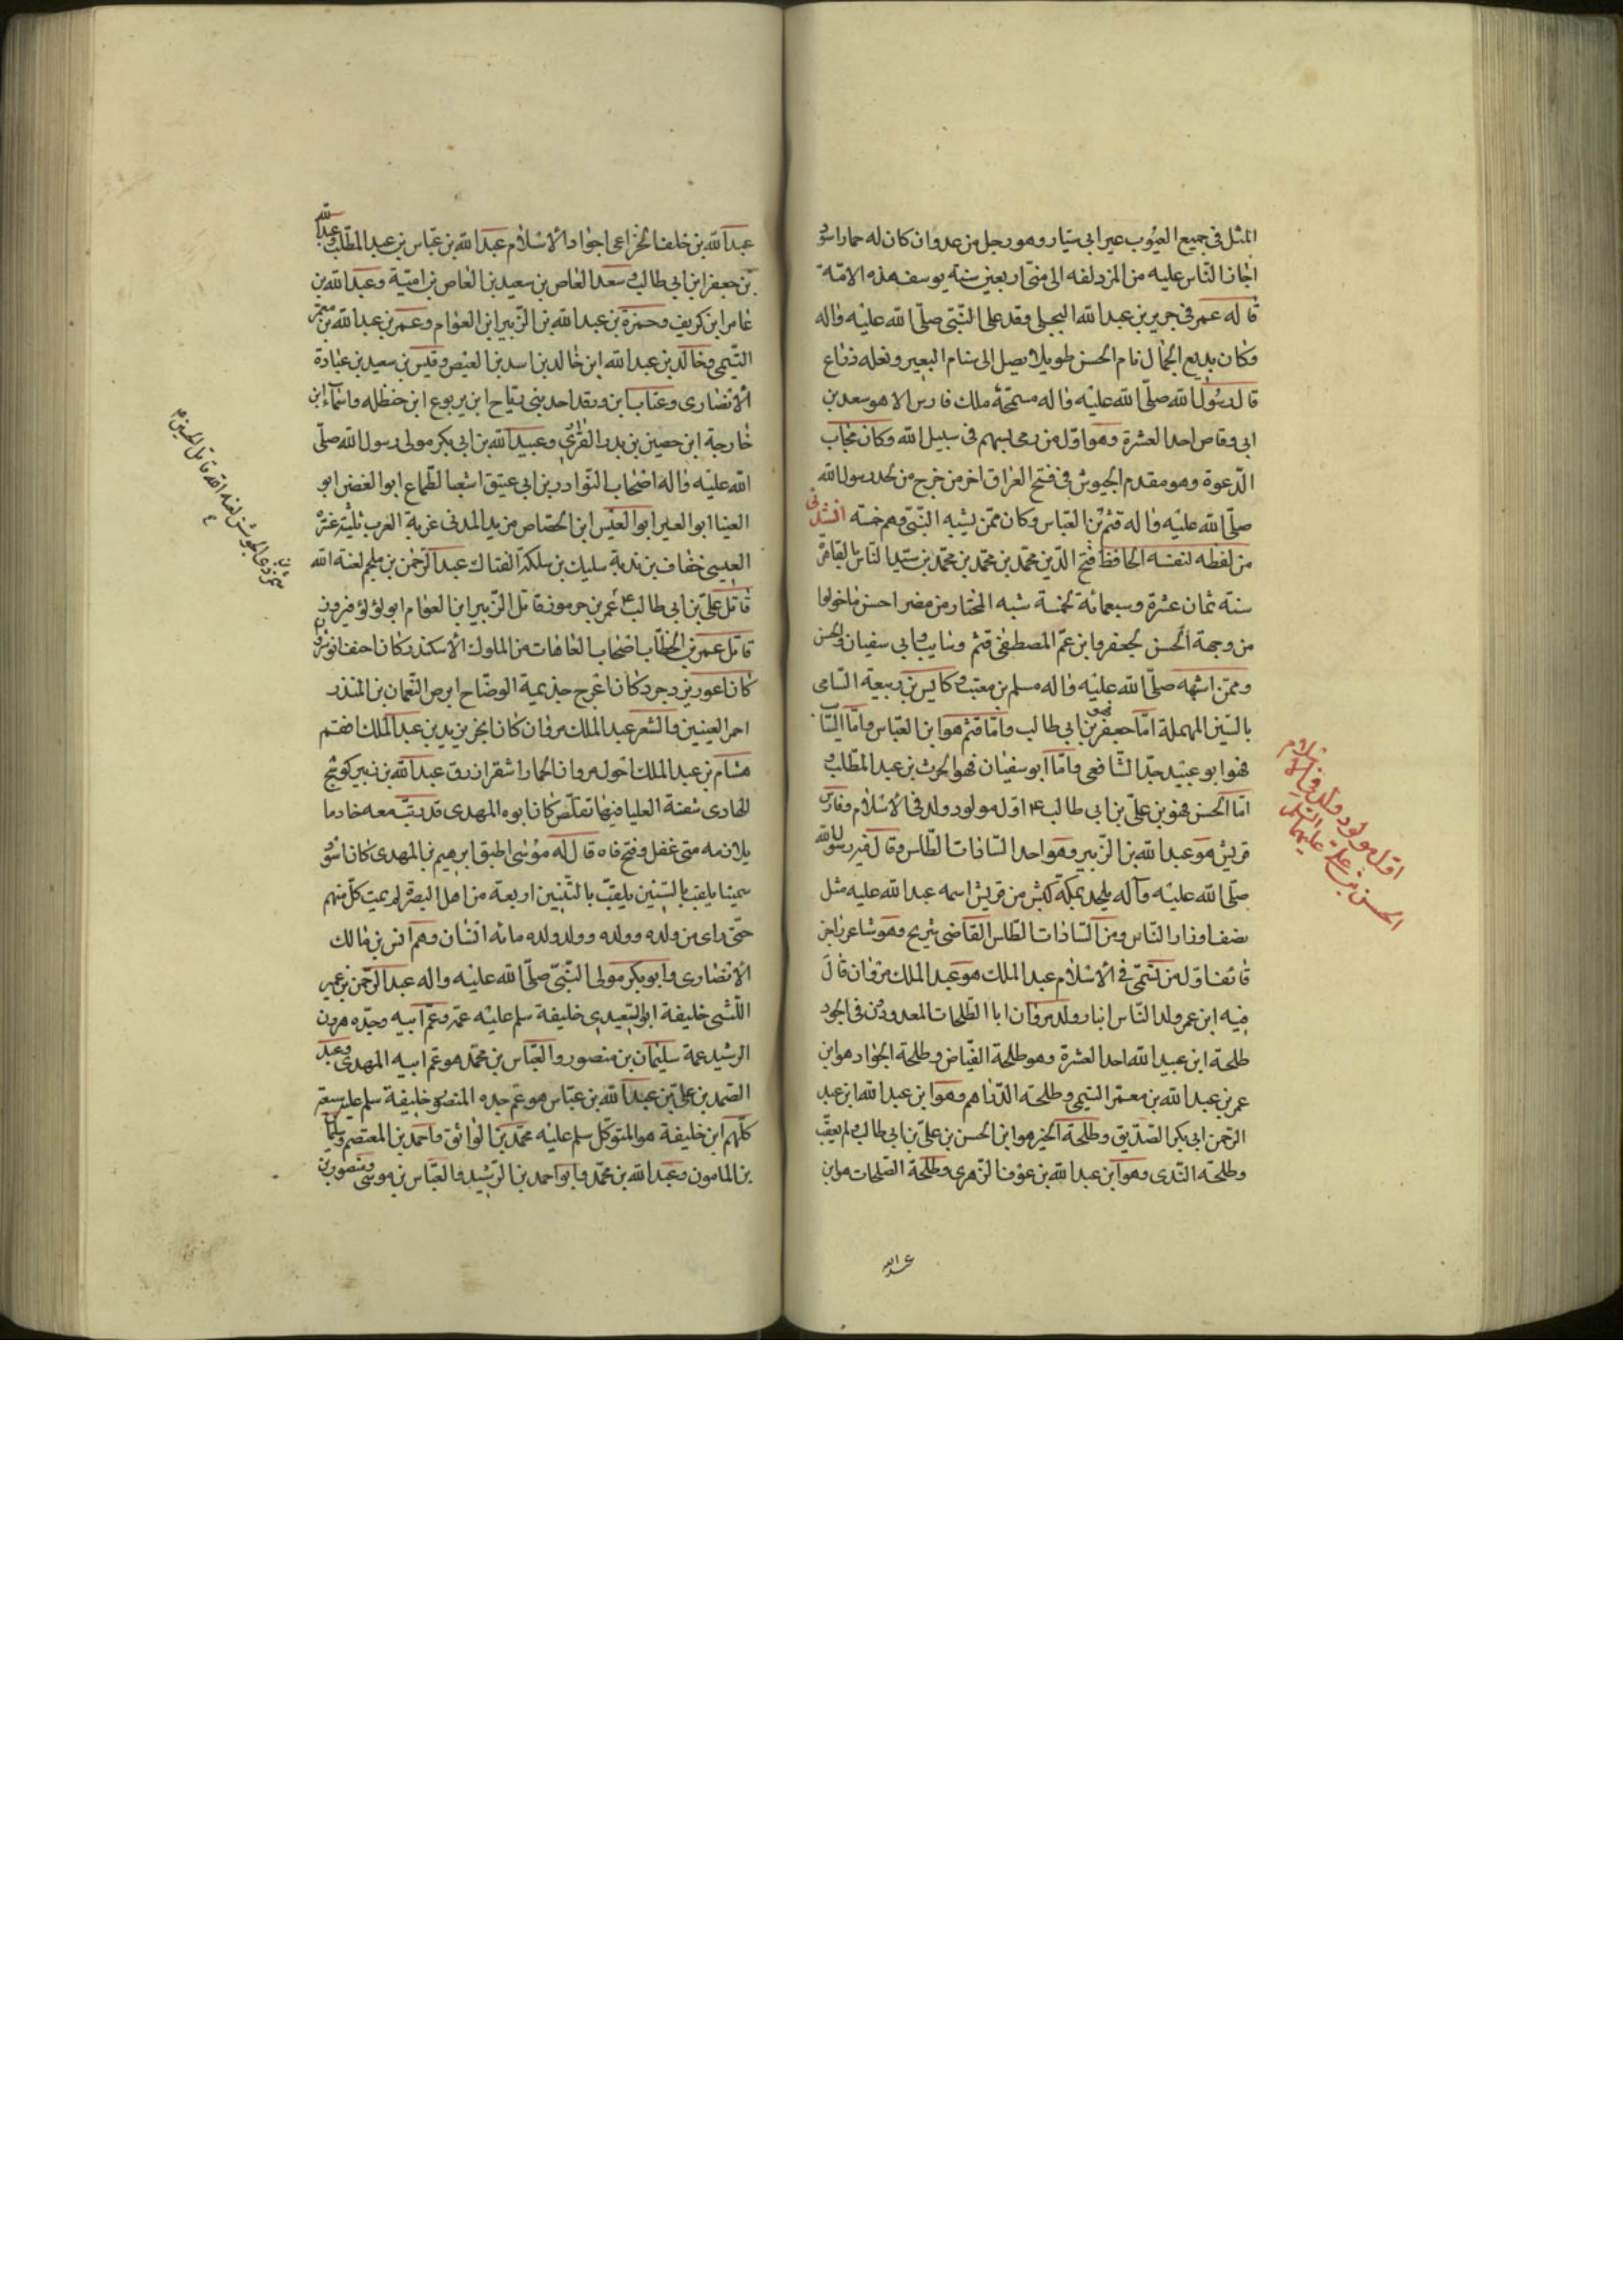 المثل في جميع العيوب عير ابي سيار وهو رجل من عدوان كان له حمار اسود
اجاز الناس عليه من المزدلفه الى منى اربعين سنة يوسف هذه الامة
قاله عمر في جرير بن عبد الله البجلى وفد على النبى صلى الله عليه واله
وكان بديع الجمال تام الحسن طويلا يصل الى سنام البعير ونعله ذراع
قال رسول الله صلى الله عليه واله ملك فارس الا هو سعد بن
ابى وقاص احد العشرة وهو اول من رمى بسهم فى سبيل الله وكان مجاب
الدعوة وهو مقدم الجيوش في فتح العراق اخر من خرج من لحد رسول الله
صلى الله عليه واله قثم بن العباس وكان ممن يشبه النبى وهم خمسة انشدنى
من لفظه لنفسه الحافظ فتح الدين محمد بن محمد بن محمد بن سيد الناس بالقاهرة
سنة ثمان عشرة وسبعمائة لخمسة شبه المختار من مضر احسن ما خولوا
من وجهه الحسن لجعفر وابن عم المصطفى قثم وسايب وابي سفيان والحسن
وممن اشبهه صلى الله عليه واله مسلم بن معتب وكابس بن ربيعة السامى
بالسين المهملة اما جعفر فهو بن ابي طالب واما قثم هو ابن العباس واما السائب
فهو ابو عبيد جد الشافعي واما ابو سفيان فهو الحرث بن عبد المطلب و
اما الحسن فهو بن على بن ابي طالب ع اول مولود ولد فى الاسلام وفارس
قريش هو عبد الله بن الزبير وهو احد السادات الطلس وقال فيه رسول الله
صلى الله عليه وآله يلحد بمكة كبش من قريش اسمه عبد الله عليه مثل
نصف اوزار الناس ومن السادات الطلس القاضى شريح وهو شاعر راجز
قائف اول من تسمى فى الاسلام عبد الملك هو عبد الملك بن مروان قال
فيه ابن عمر ولد الناس ابنا وولد مروان ابا الطلحات المعدودين فى الجود
طلحة ابن عبيد الله احد العشرة وهو طلحة الفياض وطلحة الجواد هو ابن
عمر بن عبد الله بن معمر التيمى وطلحة الدراهم وهو ابن عبد الله ابن عبد
الرحمن ابي بكر الصديق وطلحة الخير هو ابن الحسن بن على بن ابي طالب ولم يعقب
وطلحة الندى وهو ابن عبد الله بن عوف الزهرى وطلحة الطلحات هو ابن
عبد الله
اول مولود ولد فى الاسلام
الحسن بن على عليهما السلم
عبد الله بن خلف الخزاعى اجواد الاسلام عبد الله بن عباس بن عبد المطلب وعبد الله
بن جعفر ابن ابي طالب وسعد العاص بن سعيد بن العاص بن امية وعبد الله بن
عامر ابن كريف وحمزة بن عبد الله بن الزبير ابن العوام وعمر بن عبد الله بن معمر
التيمى وخالد بن عبد الله ابن خالد بن اسد بن العيص وقيس بن سعيد بن عبادة
الانصارى وعتاب ابن ورقد احد بنى رياح ابن يربوع ابن حنظله واسماء ابن
خارجة ابن حصين بن بدر الفزارى وعبيد الله بن ابي بكر مولى رسول الله صلى
الله عليه واله اصحاب النوادر بن ابي عتيق اشعب الطماع ابو الغصن ابو
العينا ابو العبر ابو العنبس ابن الجصاص مزيد المدنى غربة العرب ثلثة عنترة
العبسى خفاف بن ندبة سليك بن سلكة الفتاك عبد الرحمن بن ملجم لعنه الله
قاتل على بن ابي طالب ع عمر بن جرموز قاتل الزبير ابن العوام ابو لؤلؤ فيروز
قاتل عمر بن الخطاب اصحاب العاهات من الملوك الاسكندر كان احنف انوشروان
كان اعور يزدجرد كان اعرج جذيمة الوضاح ابرص النعمان بن المنذر
احمر العينين والشعر عبد الملك مروان كان ابخر يزيد بن عبد الملك افقم
هشام بن عبد الملك احول مروان الحمار اشقر ازرق عبد الله بن زبير كوسج
الهادى شفته العليا فيها تقلص كان ابوه المهدى قد رتب معه خادما
يلازمه متى غفل وفتح فاه قال له موسى اطبق ابرهيم بن المهدى كان اسود
سمينا يلقب بالتنين اربعة من اهل البصرة لم يمت كل منهم
حتى راى من ولده وولده وولد ولده مائه انسان وهم انس بن مالك
الانصارى وابو بكر مولى النبى صلى الله عليه واله عبد الرحمن بن عمير
الليثى خليفة ابو السعيدى خليفة سلم عليه عمه وعم ابيه وجده هرون
الرشيد عمه سليمان بن منصور والعباس بن محمد هو عم ابيه المهدى وعبد
الصمد بن على بن عبد الله بن عباس هو عم جده المنصور خليفة سلم عليه سبعة
كلهم ابن خليفة هو المتوكل سلم عليه محمد بن الواثق واحمد بن المعتصم وسليمان
بن المامون وعبد الله بن محمد وابو احمد بن الرشيد والعباس بن موسى ومنصور بن
لعنه الله قاتل الحسين ع